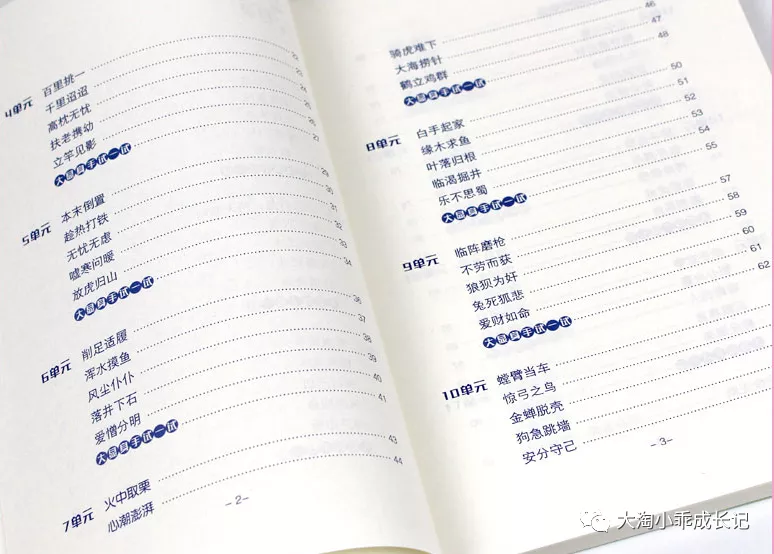 4单元 百里挑一 22
千里迢迢 23
高枕无忧
扶老携幼 25
立竿见影 26
大显身手试一试 27
5单元 本末倒置 29
趁热打铁 30
无忧无虑 31
嘘寒问暖 32
放虎归山 33
大显身手试一试 34
6单元 削足适履 36
浑水摸鱼 37
风尘仆仆 38
落井下石 39
爱憎分明 40
大显身手试一试 41
7单元 火中取栗 43
心潮澎湃 44
-2-
骑虎难下
大海捞针 46
鹤立鸡群 47
大显身手试一试 48
8单元 白手起家 50
缘木求鱼 51
叶落归根 52
临渴掘井 53
乐不思蜀 54
大显身手试一试 55
9单元 临阵磨枪 57
不劳而获 58
狼狈为奸 59
兔死狐悲 60
爱财如命 61
大显身手试一试 62
10单元 螳臂当车
惊弓之鸟
金蝉脱壳
狗急跳墙
安分守己
-3-
大淘小乖成长记